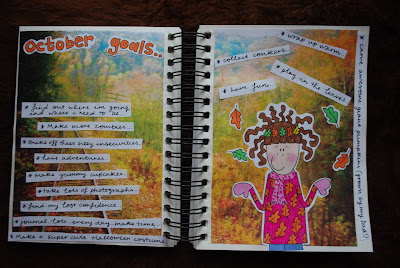 October goals..
* find out where im going
and where i need to be..
* Make more zombies...
* shake off these silly insecurities
* have adventures..
* make yummy cupcakes
* take lots of photographs.
* find my lost confidence..
* journal lots.. every day make time..
* Make a super cute Halloween costume
* wrap up warm..
* collect conkers..
* play in the leaves
* have fun..
* carve awesome giant pumpkin (grown by my Dad!)